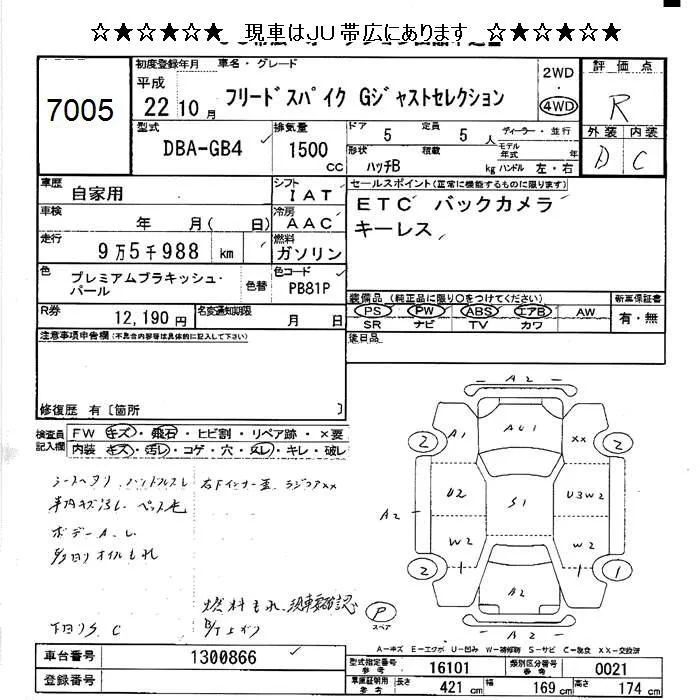 ☆★☆★☆★☆ 現車はJU帯広にあります ☆★☆★☆★☆
7005
初度登録年月
平成
22 10 月
車名・グレード
フリードスパイク Gジャストセレクション
2WD
4WD
評価点
R
外装 内装
D C
型式
DBA-GB4
排気量
1500
CC
ドア 5 定員 5 人
形状 ハッチB 積載 kg
ディーラー・並行
モデル年式 年
ハンドル 左・右
車歴 自家用
シフト IAT
車検 年 月( 日)
冷房 AAC
走行 9万5千988 km
燃料 ガソリン
色 プレミアムブラキッシュ・パール
色替
色コード PB81P
R券 12,190 円
名変通知期限 月 日
セールスポイント(正常に機能するものに限ります)
ETC バックカメラ
キーレス
装備品 (純正品に限り○をつけてください)
PS PW ABS エアB AW
SR ナビ TV カワ
新車保証書
有・無
後日品
注意事項申告欄(不具合内容等は具体的に記入して下さい)
修復歴 有〔箇所 〕
検査員記入欄
FW キズ・飛石・ヒビ割・リペア跡・×要
内装 キズ・汚レ・コゲ・穴・スレ・キレ・破レ
下回りS、C
燃料もれ、現車要確認
A2
A1 AU1 XX
2 2
U2 S1 U3W2
A2
W2 W2
2 1 1 1
A2
P
スペア
A2
A－キズ E－エクボ U－凹み W－補修跡 S－サビ C－腐食 XX－交換済
車台番号 1300866
登録番号
型式指定番号 参考 16101
類別区分番号 参考 0021
車庫証明用 参考 長さ 421 cm 幅 169 cm 高さ 174 cm